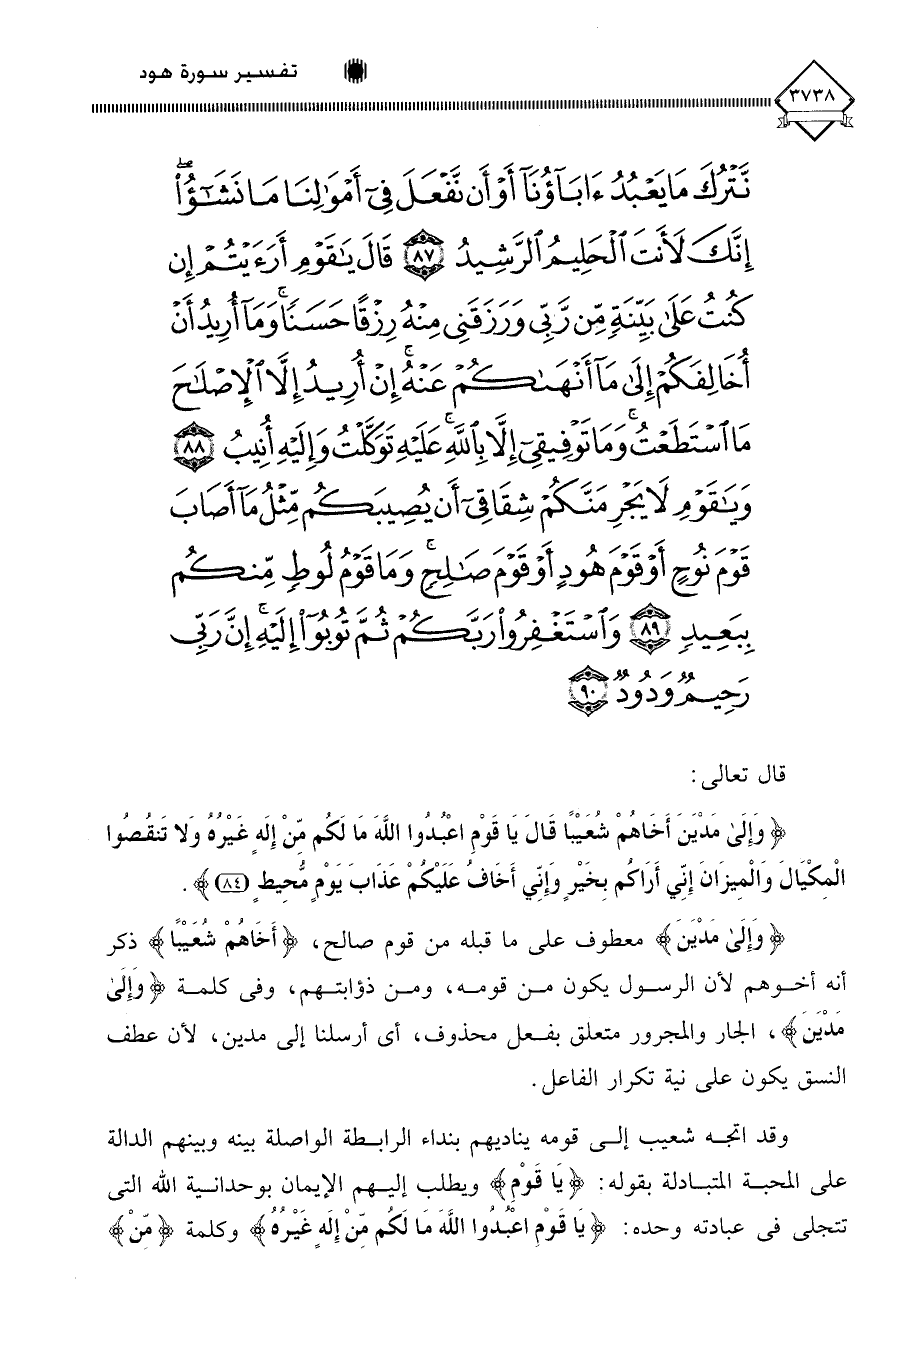 ٣٧٣٨
تفسير سورة هود
نَّتْرُكَ مَا يَعْبُدُ ءَابَآؤُنَآ أَوْ أَن نَّفْعَلَ فِىٓ أَمْوَٰلِنَا مَا نَشَٰٓؤُا۟ ۖ
إِنَّكَ لَأَنتَ ٱلْحَلِيمُ ٱلرَّشِيدُ ٨٧ قَالَ يَٰقَوْمِ أَرَءَيْتُمْ إِن
كُنتُ عَلَىٰ بَيِّنَةٍ مِّن رَّبِّى وَرَزَقَنِى مِنْهُ رِزْقًا حَسَنًا ۚ وَمَآ أُرِيدُ أَنْ
أُخَالِفَكُمْ إِلَىٰ مَآ أَنْهَىٰكُمْ عَنْهُ ۚ إِنْ أُرِيدُ إِلَّا ٱلْإِصْلَٰحَ
مَا ٱسْتَطَعْتُ ۚ وَمَا تَوْفِيقِىٓ إِلَّا بِٱللَّهِ ۚ عَلَيْهِ تَوَكَّلْتُ وَإِلَيْهِ أُنِيبُ ٨٨
وَيَٰقَوْمِ لَا يَجْرِمَنَّكُمْ شِقَاقِىٓ أَن يُصِيبَكُم مِّثْلُ مَآ أَصَابَ
قَوْمَ نُوحٍ أَوْ قَوْمَ هُودٍ أَوْ قَوْمَ صَٰلِحٍ ۚ وَمَا قَوْمُ لُوطٍ مِّنكُم
بِبَعِيدٍ ٨٩ وَٱسْتَغْفِرُوا۟ رَبَّكُمْ ثُمَّ تُوبُوٓا۟ إِلَيْهِ ۚ إِنَّ رَبِّى
رَحِيمٌ وَدُودٌ ٩٠
قال تعالى:
﴿ وَإِلَىٰ مَدْيَنَ أَخَاهُمْ شُعَيْبًا قَالَ يَا قَوْمِ اعْبُدُوا اللَّهَ مَا لَكُم مِّنْ إِلَهٍ غَيْرُهُ وَلَا تَنقُصُوا
الْمِكْيَالَ وَالْمِيزَانَ إِنِّي أَرَاكُم بِخَيْرٍ وَإِنِّي أَخَافُ عَلَيْكُمْ عَذَابَ يَوْمٍ مُّحِيطٍ (٨٤) ﴾ .
﴿ وَإِلَىٰ مَدْيَنَ ﴾ معطوف على ما قبله من قوم صالح، ﴿ أَخَاهُمْ شُعَيْبًا ﴾ ذكر
أنه أخوهم لأن الرسول يكون من قومه، ومن ذؤابتهم، وفى كلمة ﴿ وَإِلَىٰ
مَدْيَنَ ﴾، الجار والمجرور متعلق بفعل محذوف، أى أرسلنا إلى مدين، لأن عطف
النسق يكون على نية تكرار الفاعل.
وقد اتجه شعيب إلى قومه يناديهم بنداء الرابطة الواصلة بينه وبينهم الدالة
على المحبة المتبادلة بقوله: ﴿ يَا قَوْمِ ﴾ ويطلب إليهم الإيمان بوحدانية الله التى
تتجلى فى عبادته وحده: ﴿ يَا قَوْمِ اعْبُدُوا اللَّهَ مَا لَكُم مِّنْ إِلَهٍ غَيْرُهُ ﴾ وكلمة ﴿ مِّنْ ﴾